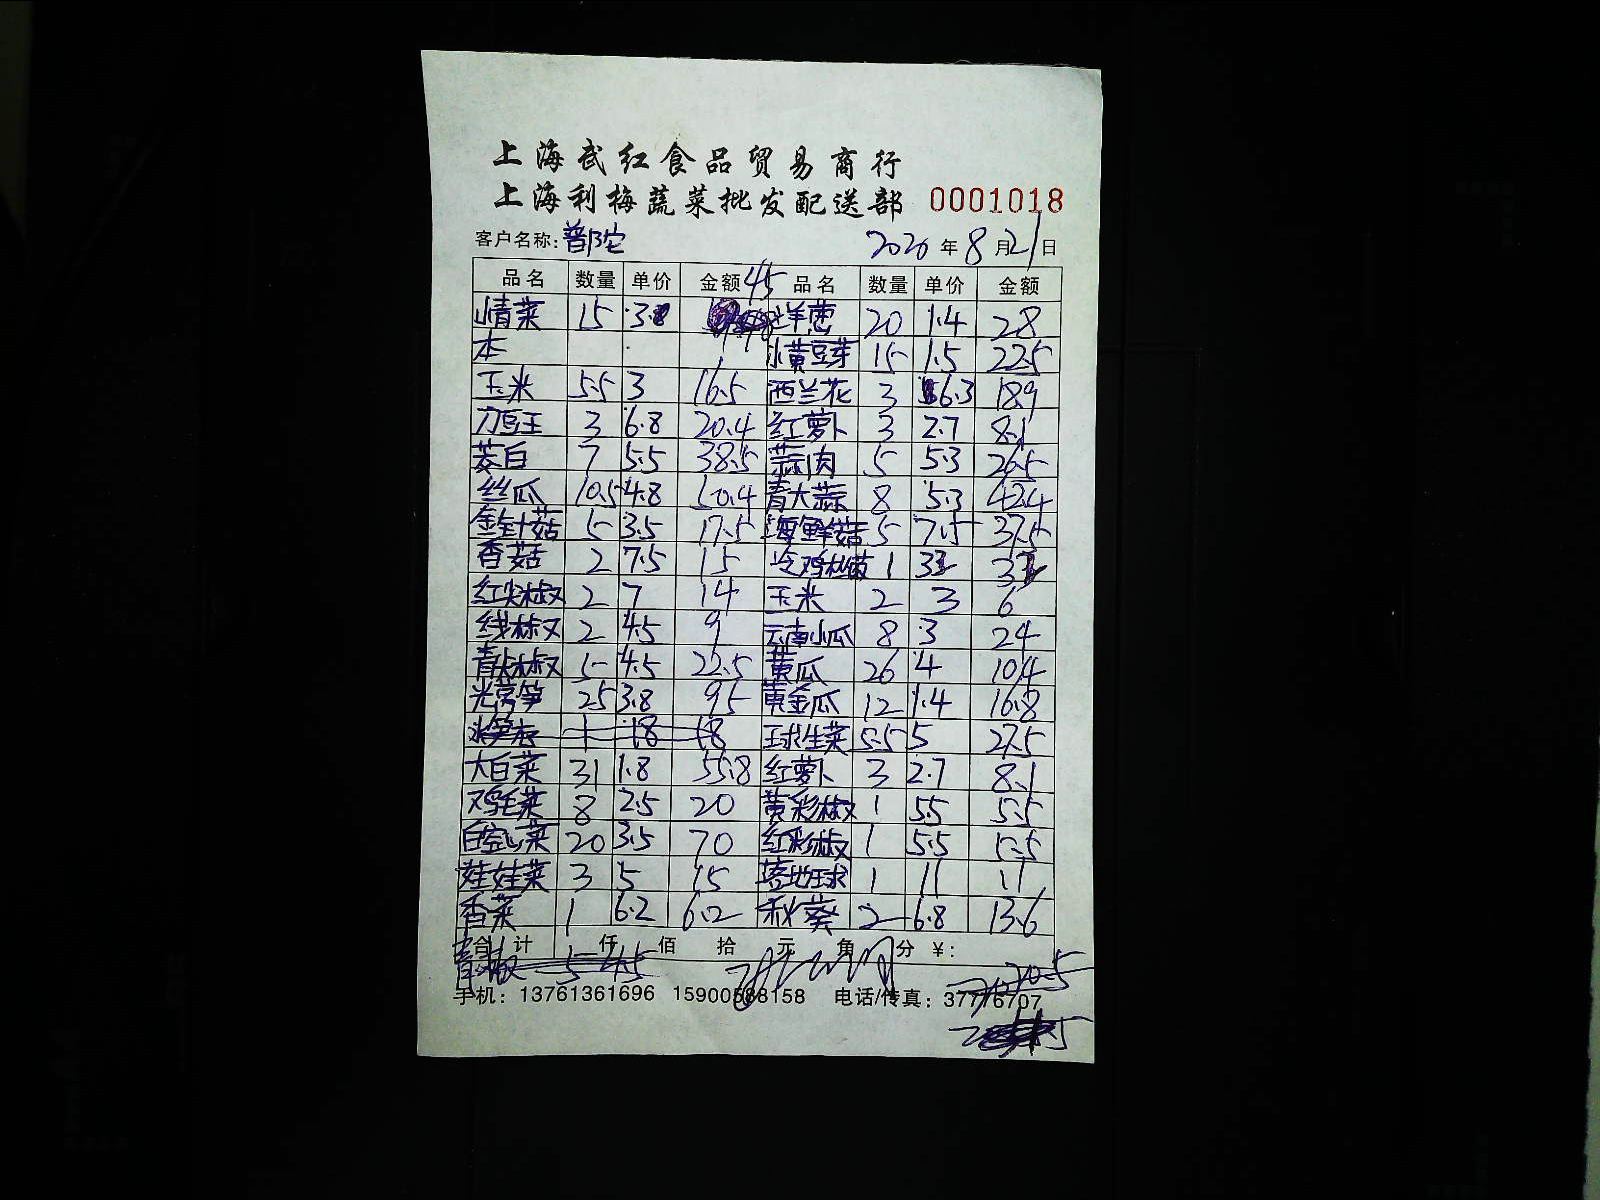 上海武红食品贸易商行
上海利梅蔬菜批发配送部 0001018
客户名称: 普陀 2020年8月21日
品名 数量 单价 金额 45 品名 数量 单价 金额
15 3 洋葱 20 1.4 28
本 小黄豆芽 15 1.5 22.5
玉米 5.5 3 16.5 西兰花 3 6.3 18.9
刀豆王 3 6.8 20.4 红萝卜 3 2.7 8.1
茭白 7 5.5 38.5 蒜肉 5 5.3 26.5
丝瓜 10.5 4.8 50.4 青大蒜 8 5.3 42.4
金针菇 5 3.5 17.5 海鲜菇 5 7.5 37.5
香菇 2 7.5 15 鸡枞菌 1
红尖椒 2 7 14 玉米 2 3 6
线椒 2 4.5 9 云南小瓜 8 3 24
青尖椒 5 4.5 22.5 黄瓜 26 4 104
光莴笋 25 3.8 95 黄金瓜 12 1.4 16.8
1 18 18 球生菜 5.5 5 27.5
大白菜 31 1.8 55.8 红萝卜 3 2.7 8.1
鸡毛菜 8 2.5 20 黄彩椒 1 5.5 5.5
白空心菜 20 3.5 70 红彩椒 1 5.5 5.5
娃娃菜 3 5 15 落地球 1 11 11
香菜 1 6.2 6.2 秋葵 2 6.8 13.6
合计 仟 佰 拾 元 角 分 ¥:
青椒 5 4.5
手机: 13761361696 15900588158 电话/传真: 37776707